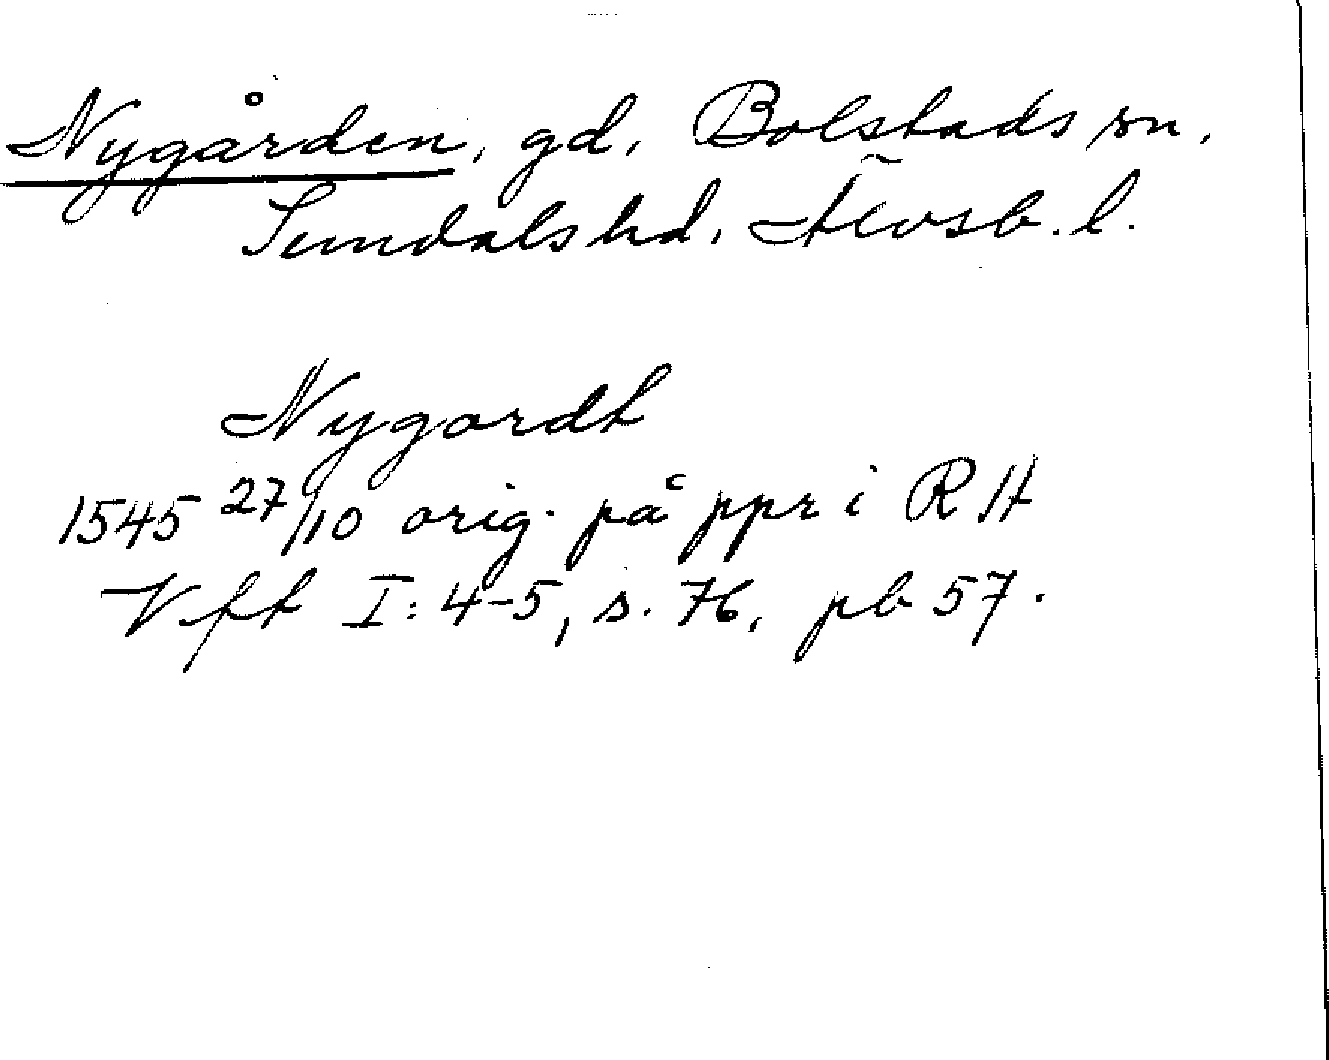 Nygården, gd, Bolstads sn,
Sundals hd, Älvsb. l.
Nygardt
1545 27/10 orig. på ppr i RH
Vfft I: 4-5, s. 76, pb 57.